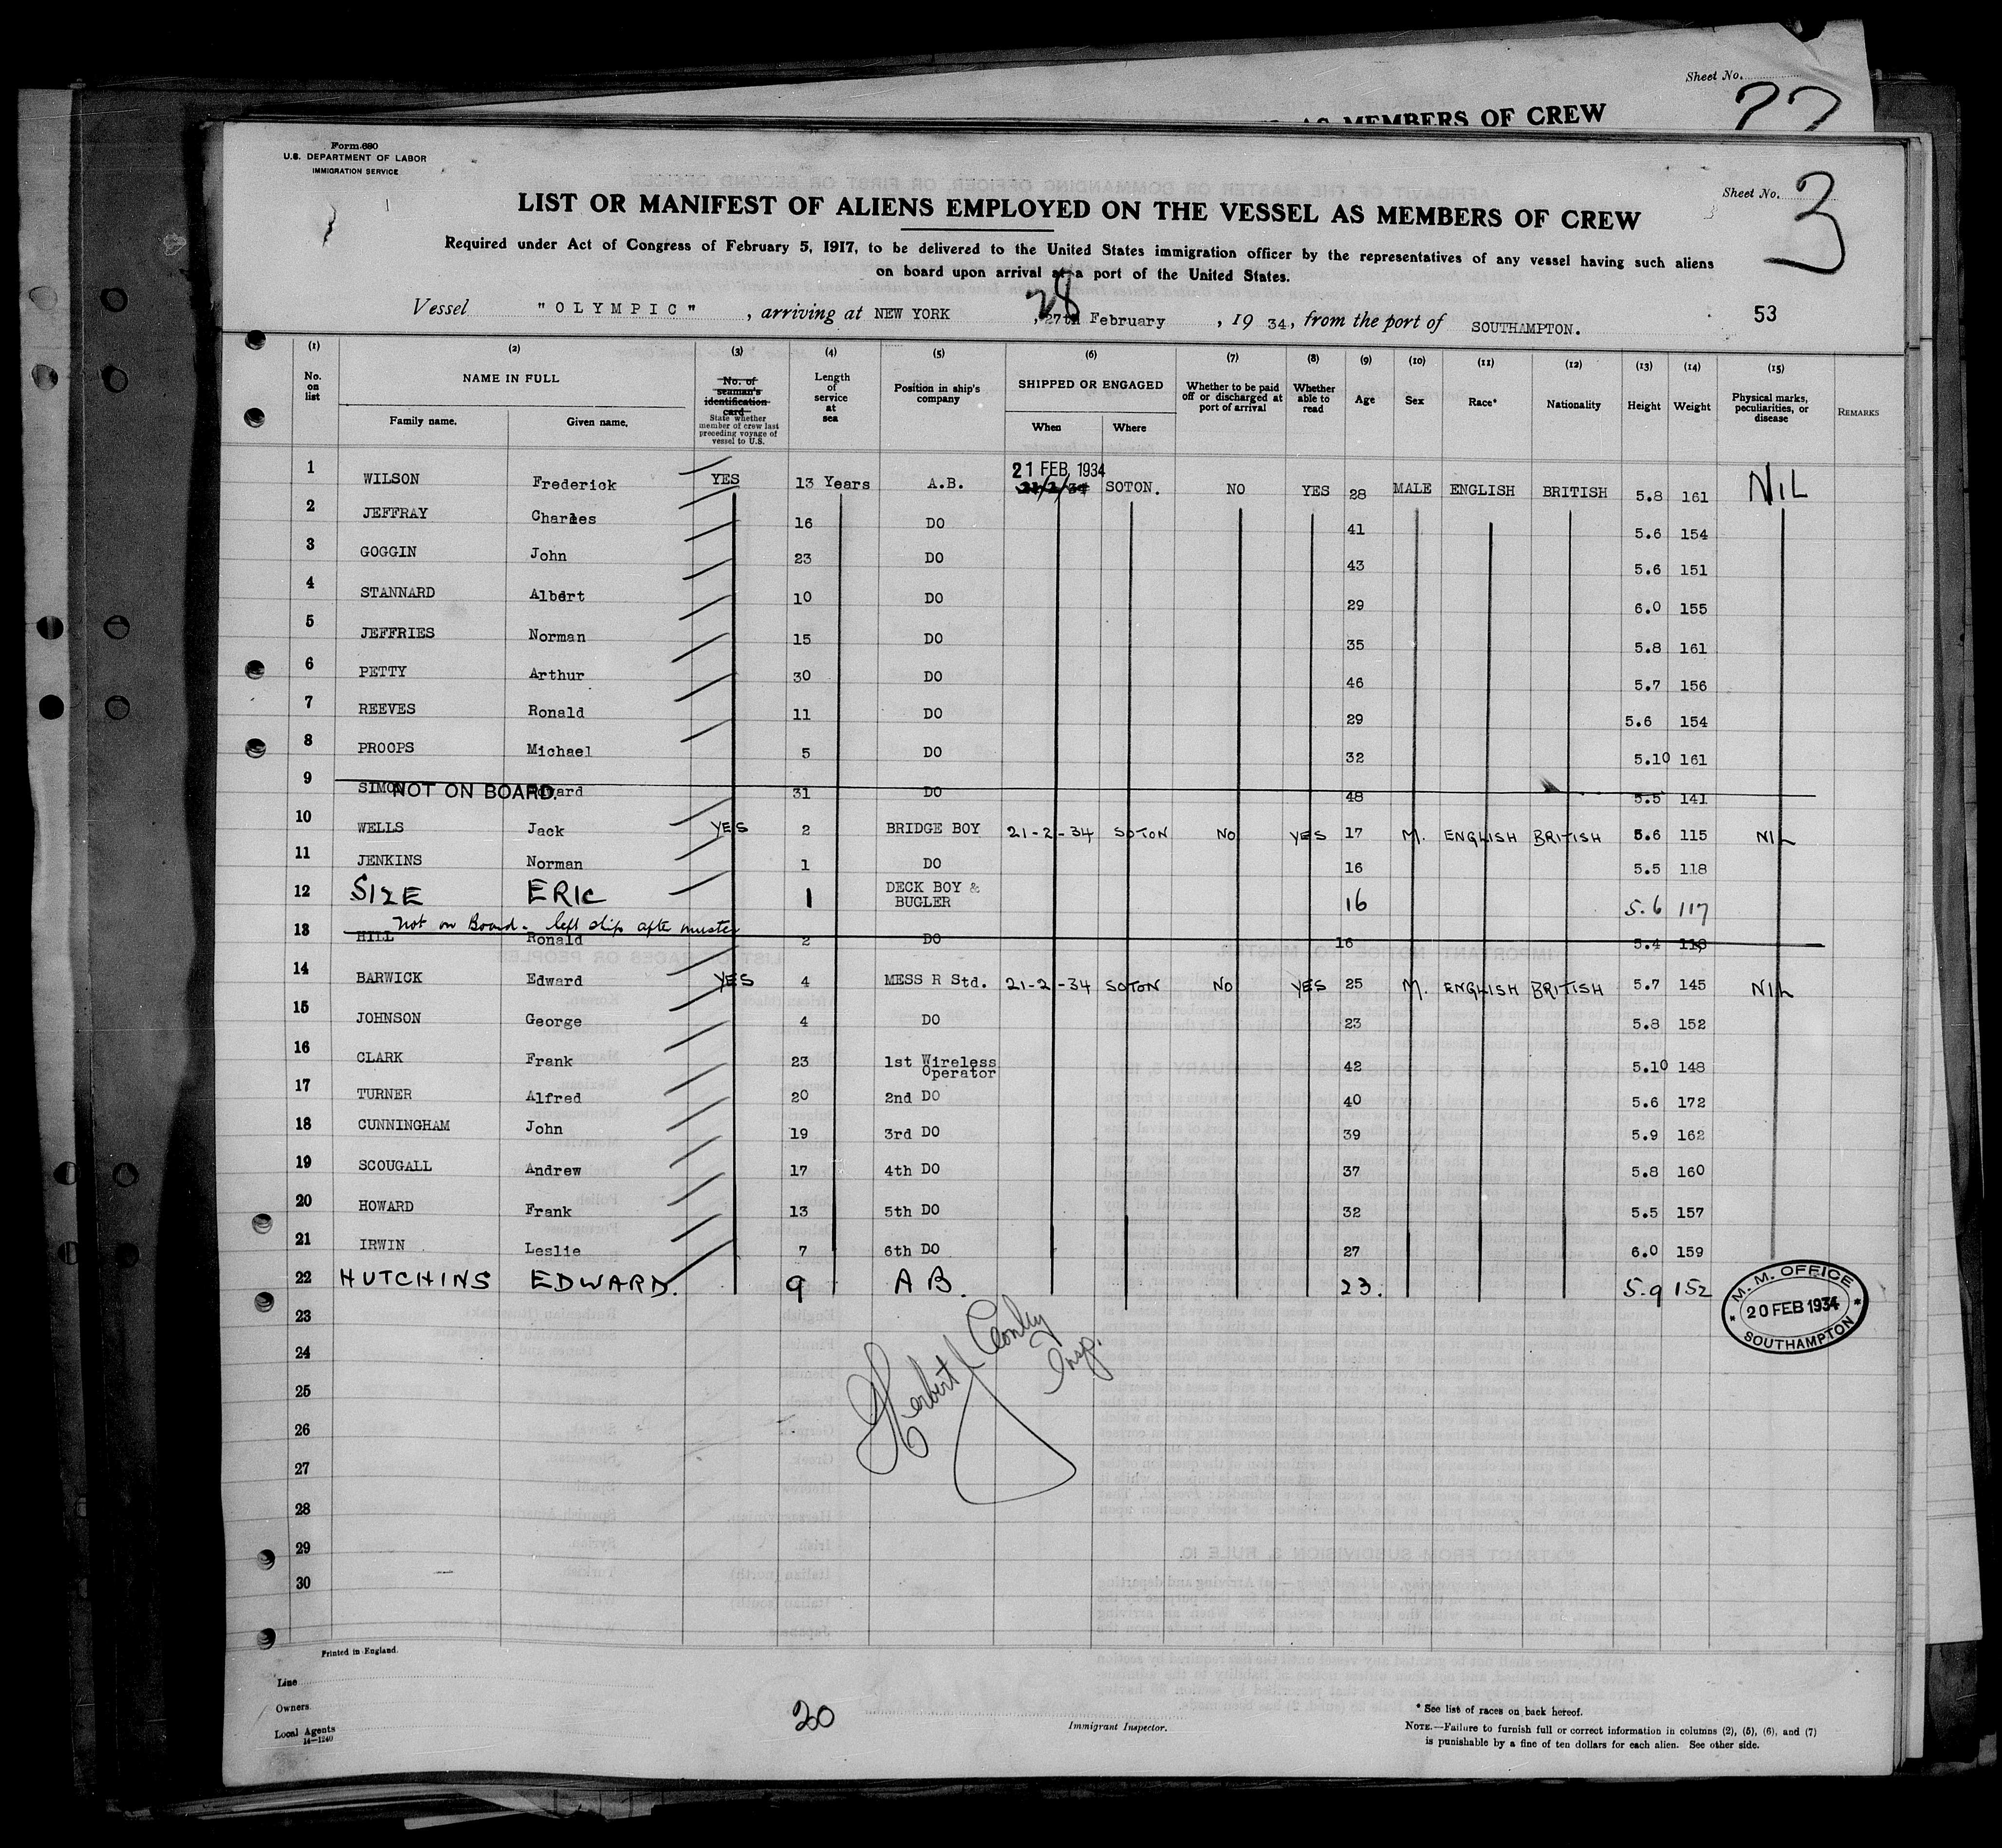 Sheet No.
AS MEMBERS OF CREW
Form 680
U.S. DEPARTMENT OF LABOR
IMMIGRATION SERVICE
Sheet No. 3
LIST OR MANIFEST OF ALIENS EMPLOYED ON THE VESSEL AS MEMBERS OF CREW
Required under Act of Congress of February 5, 1917, to be delivered to the United States immigration officer by the representatives of any vessel having such aliens
on board upon arrival at a port of the United States.
Vessel "OLYMPIC", arriving at NEW YORK, 28 27th February, 19 34, from the port of SOUTHAMPTON. 53
(1) (2) (3) (4) (5) (6) (7) (8) (9) (10) (11) (12) (13) (14) (15)
No. on list NAME IN FULL Family name. Given name. No. of seaman's identification card State whether member of crew last preceding voyage of vessel to U.S. Length of service at sea Position in ship's company SHIPPED OR ENGAGED When Where Whether to be paid off or discharged at port of arrival Whether able to read Age Sex Race* Nationality Height Weight Physical marks, peculiarities, or disease REMARKS
1 WILSON Frederick YES 13 Years A.B. 21 FEB 1934 21/2/34 SOTON. NO YES 28 MALE ENGLISH BRITISH 5.8 161 NIL
2 JEFFRAY Charles 16 DO 41 5.6 154
3 GOGGIN John 23 DO 43 5.6 151
4 STANNARD Albert 10 DO 29 6.0 155
5 JEFFRIES Norman 15 DO 35 5.8 161
6 PETTY Arthur 30 DO 46 5.7 156
7 REEVES Ronald 11 DO 29 5.6 154
8 PROOPS Michael 5 DO 32 5.10 161
9 SIMON NOT ON BOARD. 31 DO 48 5.5 141
10 WELLS Jack YES 2 BRIDGE BOY 21-2-34 SOTON NO YES 17 M. ENGLISH BRITISH 5.6 115 NIL
11 JENKINS Norman 1 DO 16 5.5 118
12 SIZE ERIC 1 DECK BOY & BUGLER 16 5.6 117
Not on Board. left ship after muster
13 HILL Ronald 2 DO 16 5.4 118
14 BARWICK Edward YES 4 MESS R Std. 21-2-34 SOTON NO YES 25 M. ENGLISH BRITISH 5.7 145 NIL
15 JOHNSON George 4 DO 23 5.8 152
16 CLARK Frank 23 1st Wireless Operator 42 5.10 148
17 TURNER Alfred 20 2nd DO 40 5.6 172
18 CUNNINGHAM John 19 3rd DO 39 5.9 162
19 SCOUGALL Andrew 17 4th DO 37 5.8 160
20 HOWARD Frank 13 5th DO 32 5.5 157
21 IRWIN Leslie 7 6th DO 27 6.0 159
22 HUTCHINS EDWARD. 9 A B. 23. 5.9 152
M. M. OFFICE
20 FEB 1934
SOUTHAMPTON
23
24
Herbert Insp.
25
26
27
28
29
30
Printed in England.
Line
Owners
Local Agents
14—1240
20
Immigrant Inspector.
* See list of races on back hereof.
NOTE.—Failure to furnish full or correct information in columns (2), (5), (6), and (7)
is punishable by a fine of ten dollars for each alien. See other side.